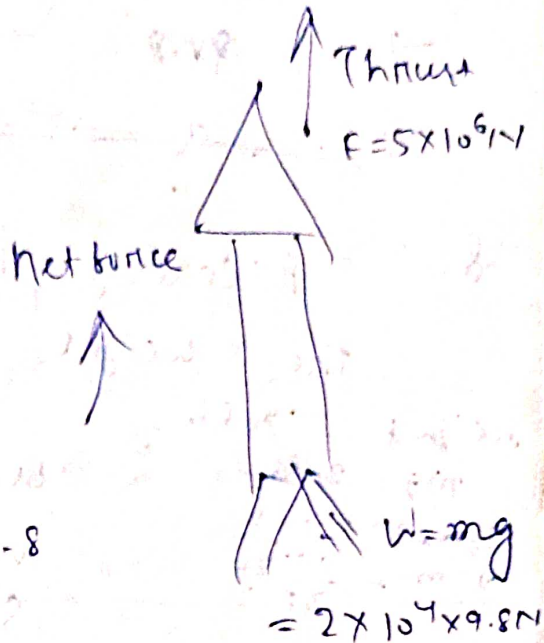 Thrust
F=5×10⁶N
Net force
.8
W=mg
= 2×10⁴×9.8N